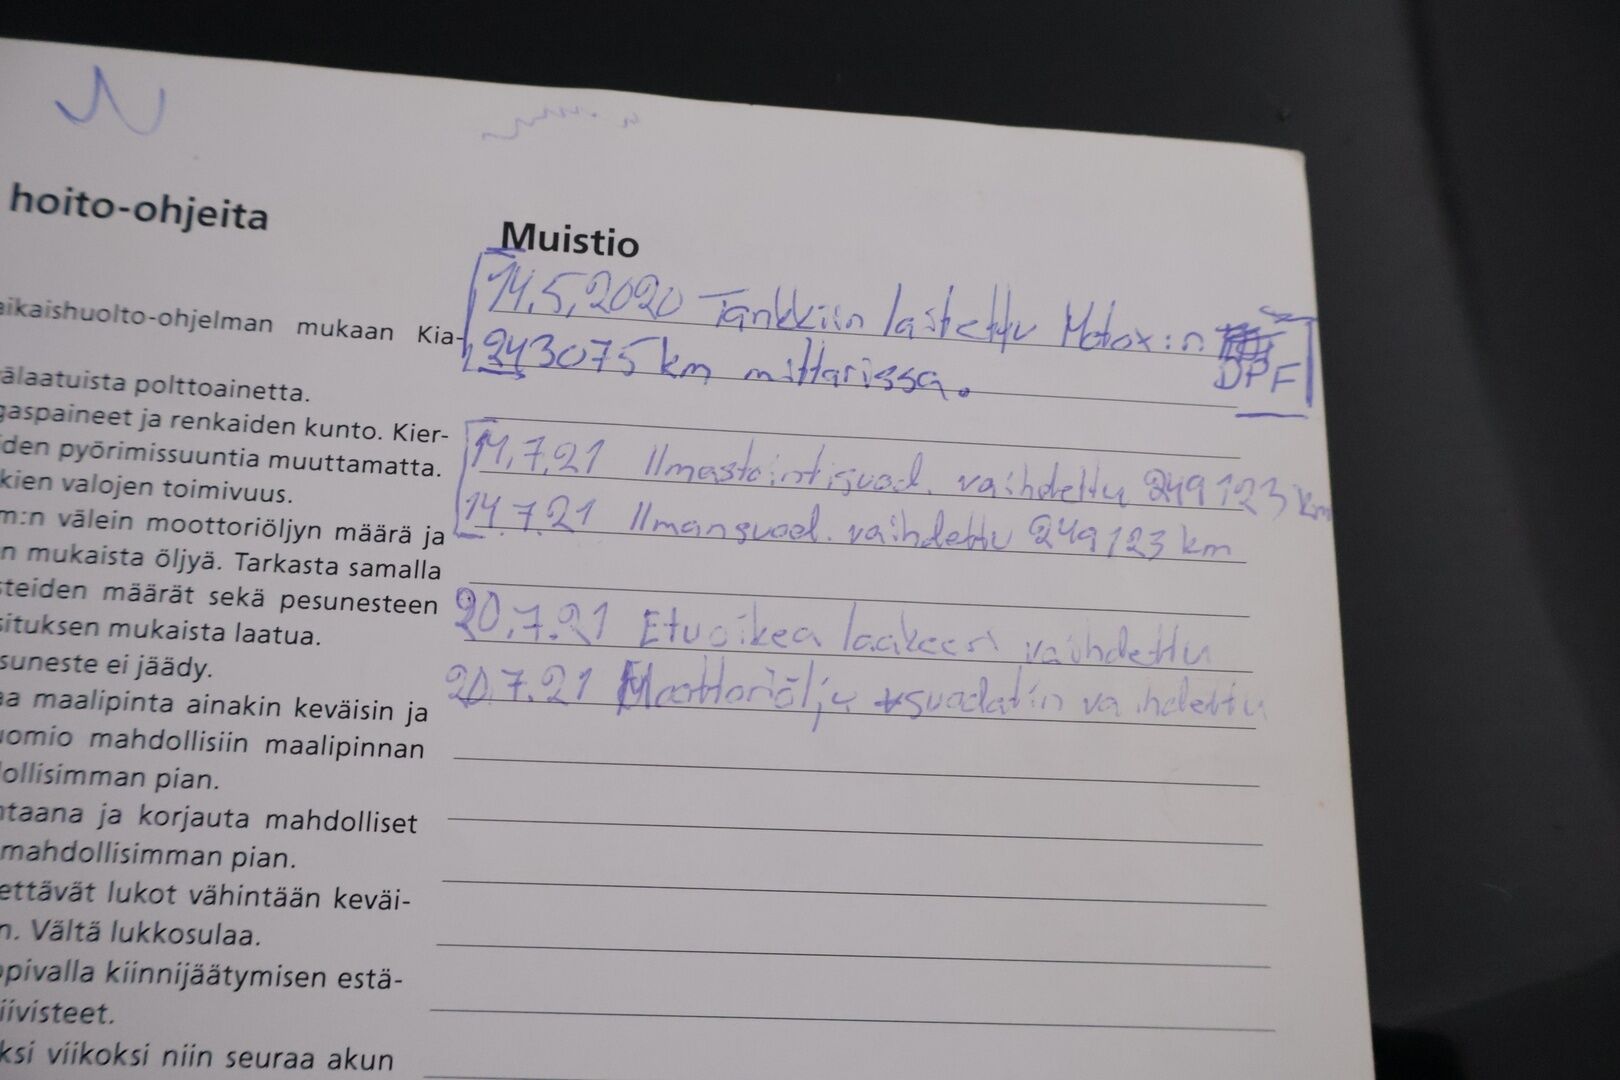 hoito-ohjeita
aikaishuolto-ohjelman mukaan Kia-
älaatuista polttoainetta.
gaspaineet ja renkaiden kunto. Kier-
den pyörimissuuntia muuttamatta.
kien valojen toimivuus.
m:n välein moottoriöljyn määrä ja
n mukaista öljyä. Tarkasta samalla
steiden määrät sekä pesunesteen
situksen mukaista laatua.
suneste ei jäädy.
aa maalipinta ainakin keväisin ja
uomio mahdollisiin maalipinnan
ollisimman pian.
ntaana ja korjauta mahdolliset
mahdollisimman pian.
ettävät lukot vähintään keväi-
n. Vältä lukkosulaa.
opivalla kiinnijäätymisen estä-
iivisteet.
ksi viikoksi niin seuraa akun
Muistio
14.5.2020 Tankkiin laitettu Motox:n DPF
243075 km mittarissa.
14.7.21 Ilmastointisuod. vaihdettu 249123 km
14.7.21 Ilmansuod. vaihdettu 249123 km
20.7.21 Etuoikea laakeri vaihdettu
20.7.21 Moottoriöljy suodatin vaihdettu